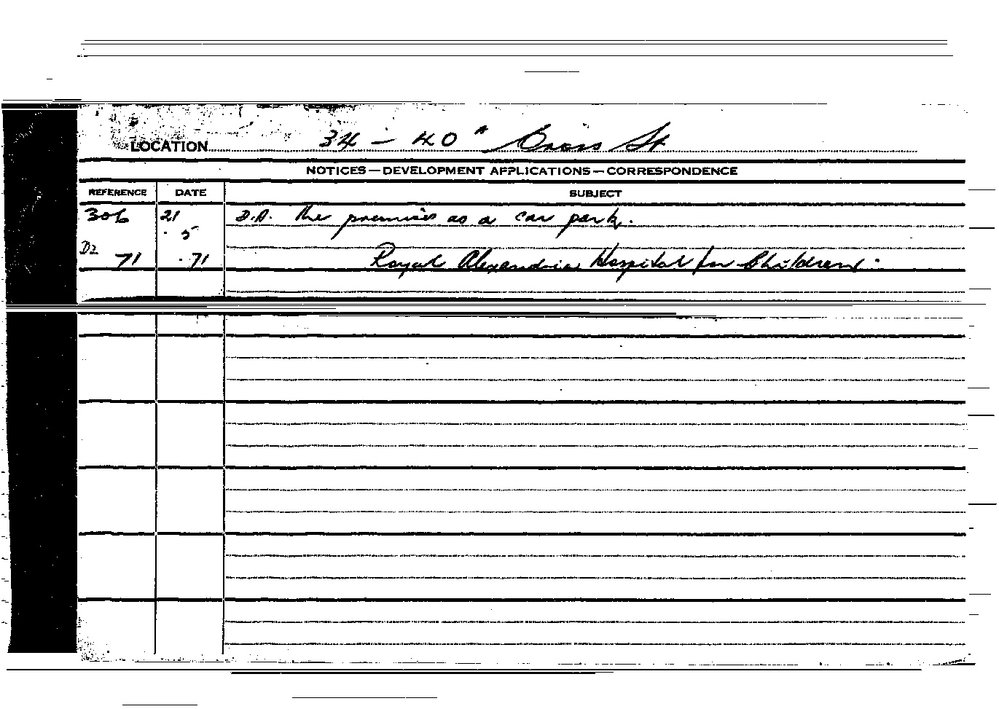 LOCATION 34 - 40A Cross St
NOTICES — DEVELOPMENT APPLICATIONS — CORRESPONDENCE
REFERENCE DATE SUBJECT
306 21 D.A. the premises as a car park.
. 5
D2 71 . 71 Royal Alexandria Hospital for Children.